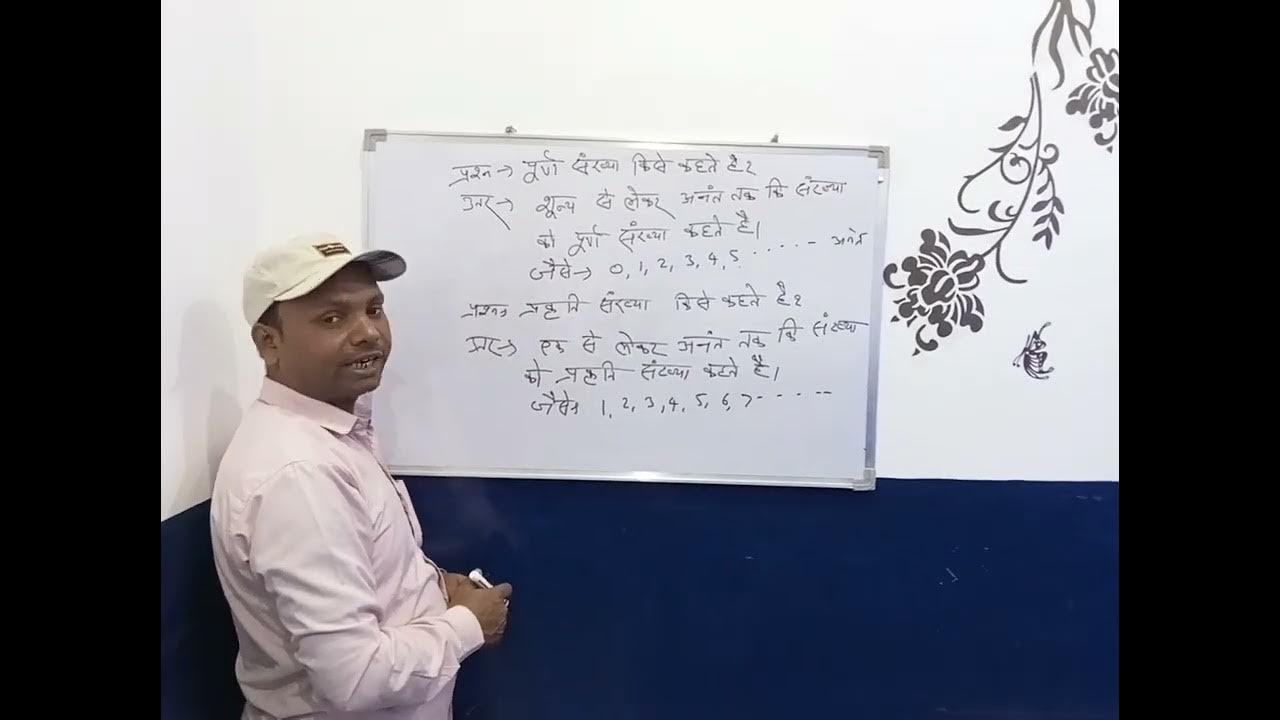 प्रश्न → पूर्ण संख्या किसे कहते है?
उत्तर → शून्य से लेकर अनंत तक कि संख्या
को पूर्ण संख्या कहते है।
जैसे → 0, 1, 2, 3, 4, 5. ..... अनंत
प्रश्न → प्रकृति संख्या किसे कहते है?
उत्तर → एक से लेकर अनंत तक कि संख्या
को प्रकृति संख्या कहते है।
जैसे → 1, 2, 3, 4, 5, 6, 7 ......